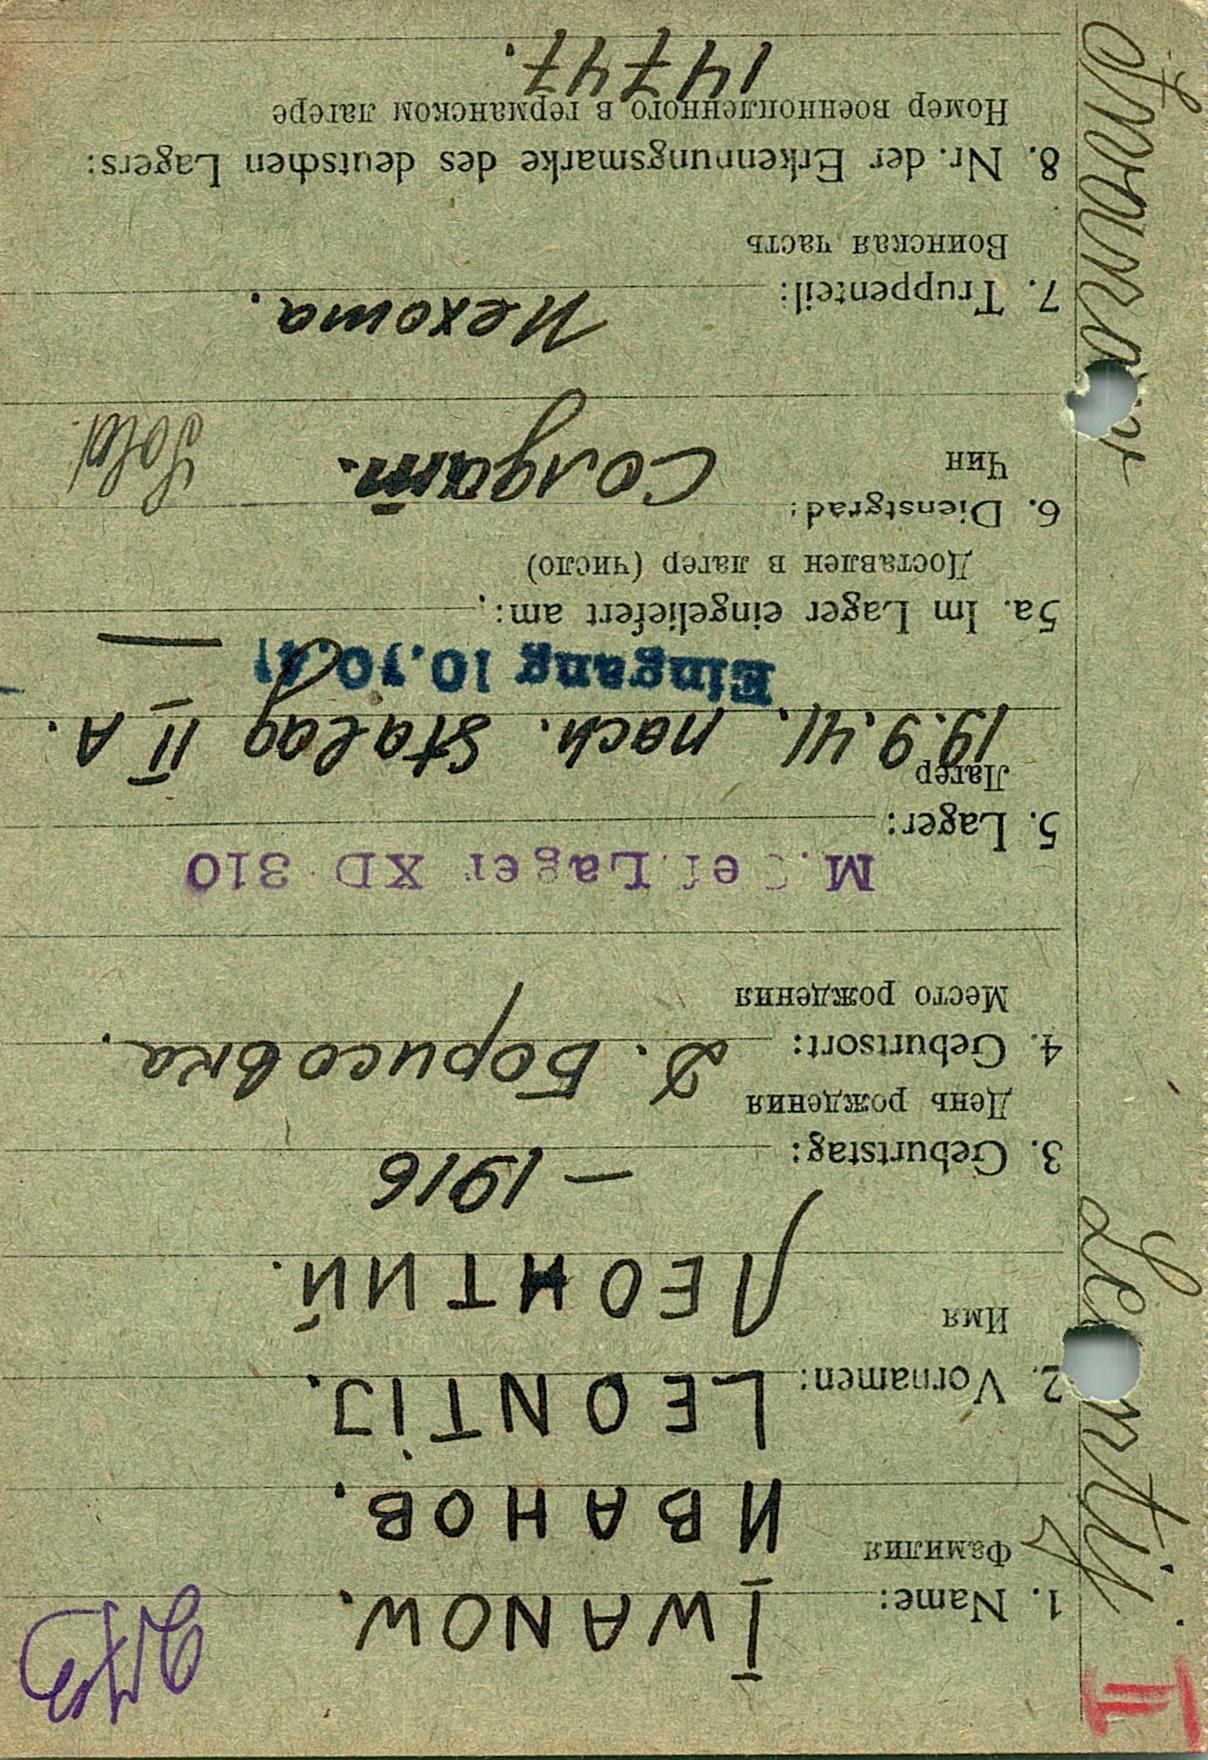 1. Name: IWANOW.
Фамилия ИВАНОВ.
2. Vornamen: LEONTIJ.
Имя ЛЕОНТИЙ.
3. Geburtstag: – 1916
День рождения
4. Geburtsort: Д. Борисовка.
Место рождения
Lager XD 310
5. Lager:
Лагер
19.9.41. nach. Stalag II A.
Eingang 10.10.41
5a. Im Lager eingeliefert am: —
Доставлен в лагер (число)
6. Dienstgrad: Солдат. Sold.
Чин
7. Truppenteil: Пехота.
Воинская часть
8. Nr. der Erkennungsmarke des deutschen Lagers:
Номер военнопленного в германском лагере
14747.